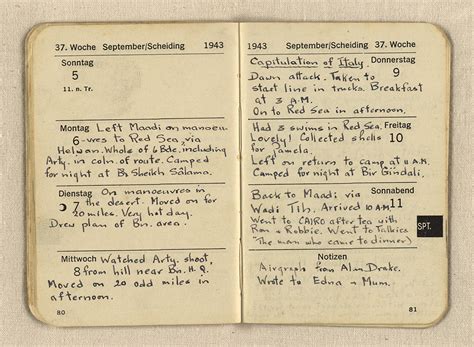 37. Woche September/Scheiding 1943
Sonntag
5
11. n. Tr.
Montag Left Maadi on manoeu
6 -vres to Red Sea, via
Helwan. Whole of 6 Bde. including
Arty. in coln. of route. Camped
for night at Bs Sheikh Sâlama.
Dienstag On manoeuvres in
7 the desert. Moved on for
20 miles. Very hot day.
Drew plan of Bn. area.
Mittwoch Watched Arty. shoot,
8 from hill near Bn. H.Q.
Moved on 20 odd miles in
afternoon.
80
1943 September/Scheiding 37. Woche
Capitulation of Italy. Donnerstag
Dawn attack. Taken to 9
start line in trucks. Breakfast
at 3 A.M.
On to Red Sea in afternoon.
Had 3 swims in Red Sea. Freitag
Lovely! Collected shells 10
for Pamela.
Left on return to camp at 11 A.M.
Camped for night at Bir Gindali.
Back to Maadi via Sonnabend
Wadi Tih. Arrived 10 A.M. 11
Went to CAIRO after tea with
Ron & Robbie. Went to Talkies
(The man who came to dinner)
SPT.
Notizen
Airgraph from Alan Drake.
Wrote to Edna & Mum.
81